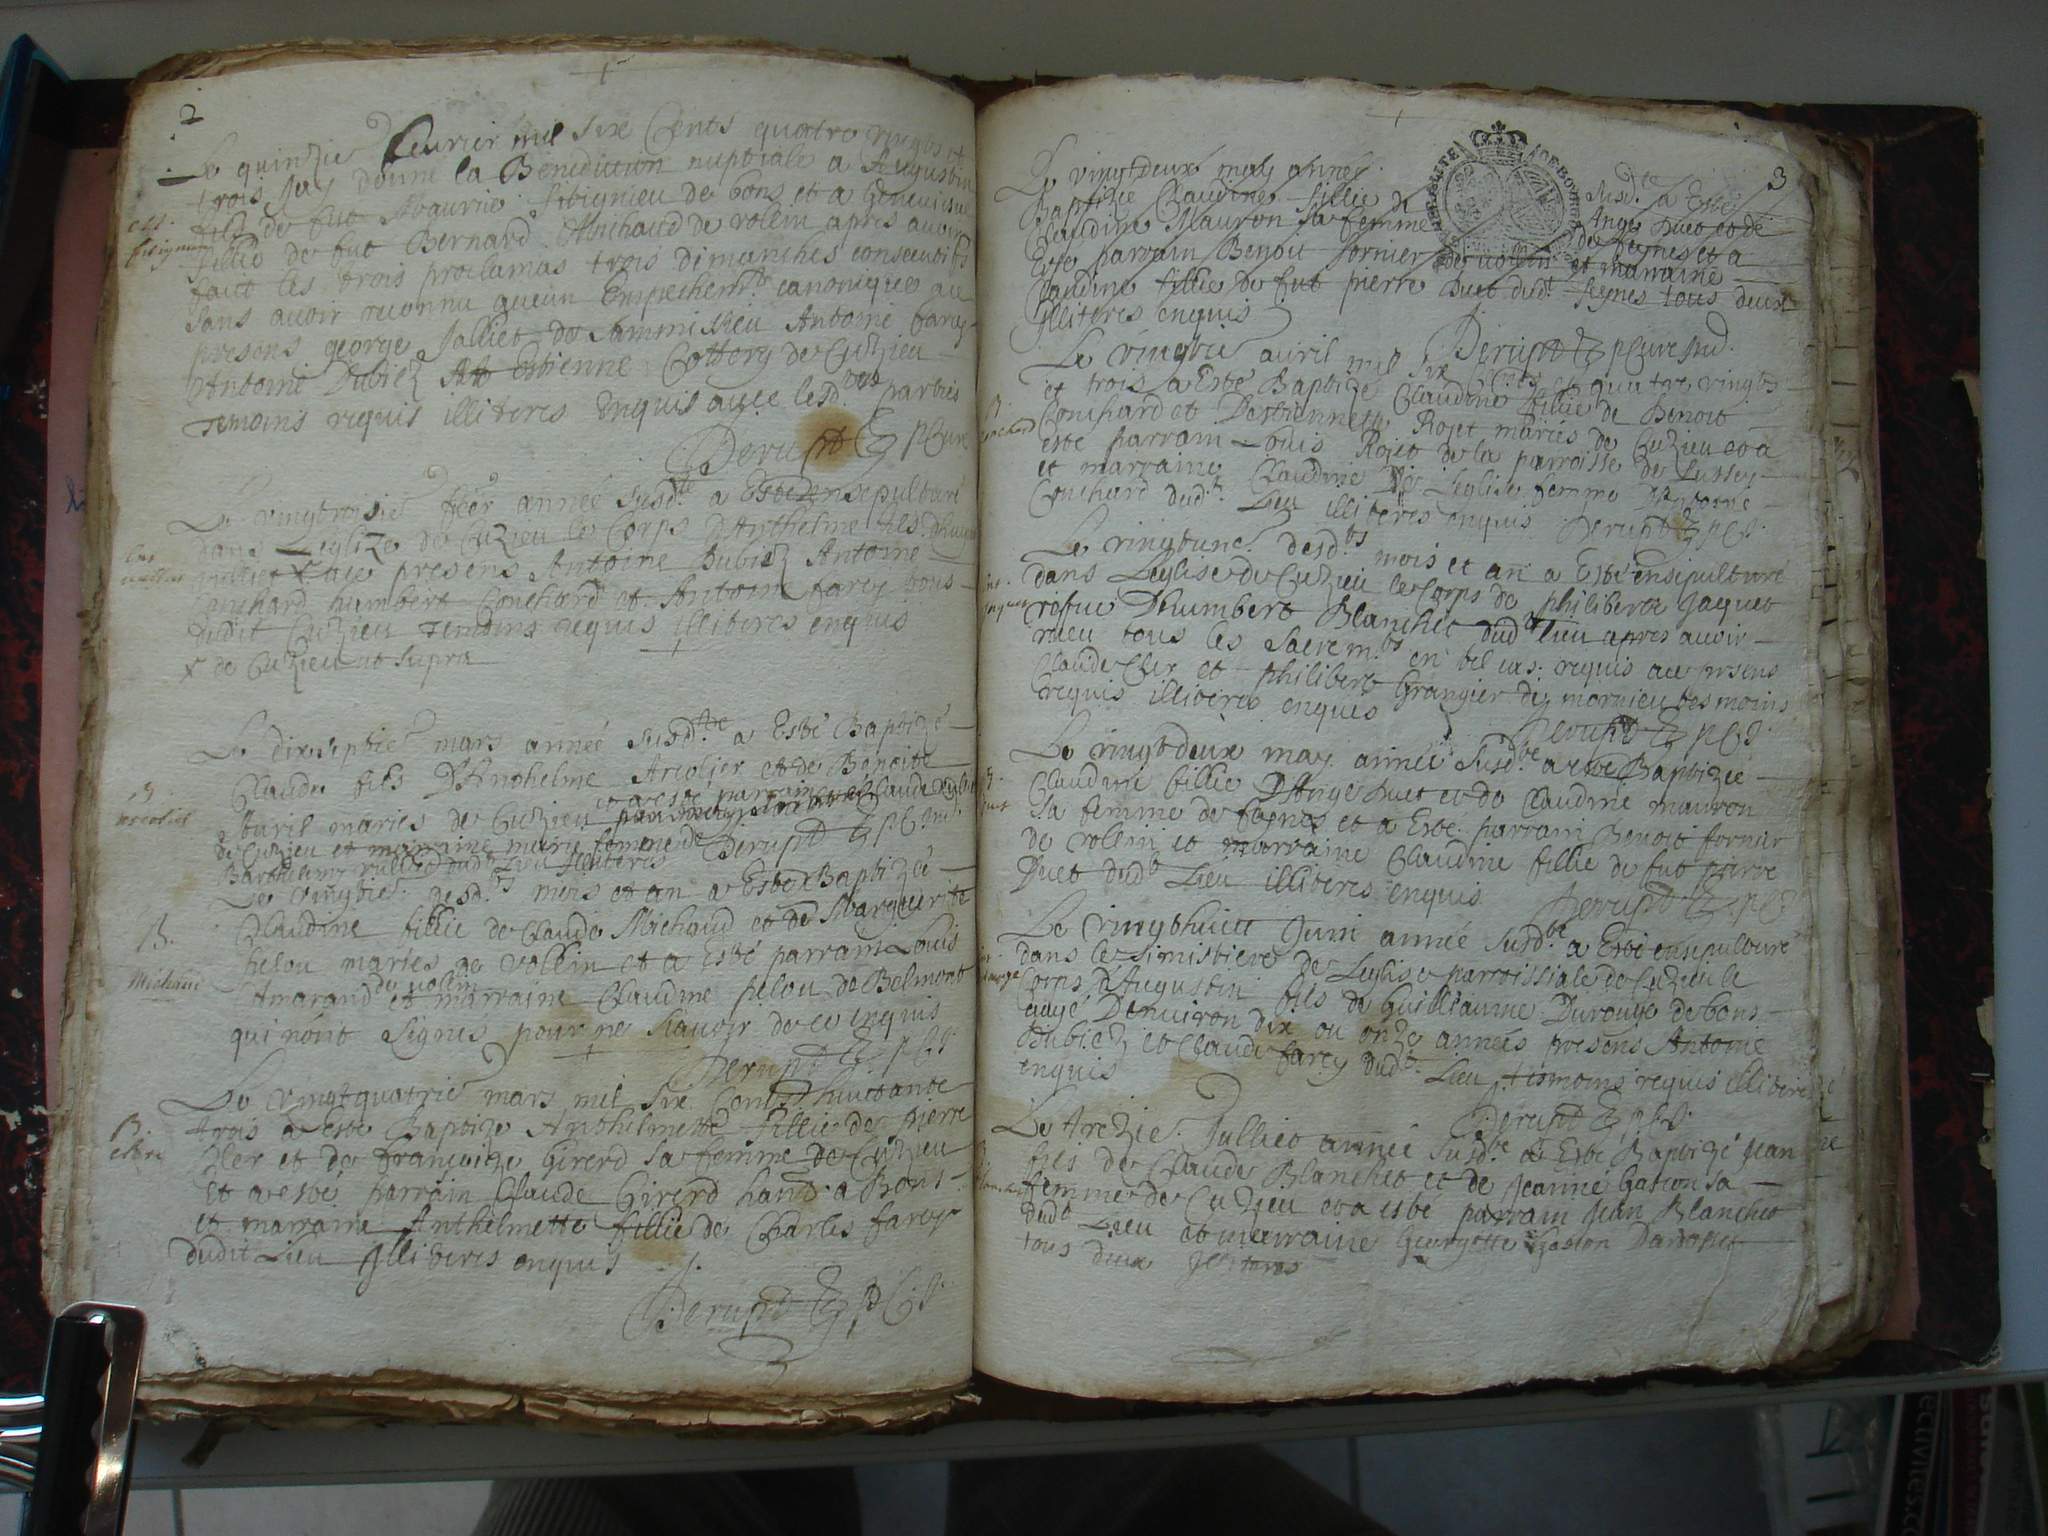 2
Le quinzie feurier mil six Cents quatre vingts et
trois Jay donne la Benediction nuptiale a Augustin
filz de fut Maurrie Sibignieu de bons et a Geneviesue
fillie de fut Bernard Michaud de volein apres auoir
faict les trois proclamas trois dimanches consecutifs
sans auoir reconnu aucun Empechemt canonique aue
presens george Jalliet de Sammissieu Antoine farcy
Antoine Dubiez Estienne Cottery de Cuzieu
Temoins requis illiteres Enquis auec lesd. parties
Derupt Cure
Le vingtroisie feer année susdte a Esté Ensepulturé
dans Leglize de Cuzieu le Corps D'Anthelme fils
Guilliet X aue presens Antoine Dubiez Antoine
Couchard humbert Couchard et Antoine farcy tous
dudit Cuzieu Temoins requis illiteres enquis
X de Cuzieu ut supra
Le dixseptie mars année susdte a Esté Baptizé
Claude fils D'Anthelme Arcolier et de Benoite
Buril mariés de Cuzieu et a esté parrain Claude
de Cuzieu et marraine marie femme de Derupt
Barthelemy dudt Lieu illiteres
Le vingtie desdts mois et an a Esté Baptizée
Claudine fillie de Claude Michaud et de Marguerite
pelou mariés de vollin et a Esté parrain Louis
Michaud
Amarand de volein et marraine Claudine pelou de Belmont
qui nont Signés pour ne Scauoir de ce enquis
Derupt
Le vingtquatrie mars mil six Cents huictante
B.
trois a Esté Baptize Anthelmette fillie de pierre
Cler et de francoize Girerd sa femme de Cuzieu
Et a esté parrain Claude Girerd hant a Bons
et marraine Anthelmette fillie de Charles farcy
dudit Lieu Illiteres enquis
Derupt
3
Le vingtdeux may année susdte a Esté
Baptizée Claudine fillie de Ange Duet et de
Claudine Mauron sa femme de feynes et a
Esté parrain Benoit fornier de vollin et marraine
Claudine fillie de fut pierre Duet dudt feynes tous deux
illiteres enquis
Derupt Cure
Le vingtie auril mil six Cents et quatre vingts
et trois a Esté Baptizé Claudine fillie de Benoit
Couchard et D'estiennette Rojet mariés de Cuzieu et a
esté parrain Louis Rojet de la parroisse de Lussey
et marraine Claudine De Leglise femme D'Antoine
Couchard dudt Lieu illiteres enquis Derupt
Le vingtune desdts mois et an a Esté ensepulturé
dans Leglise de Cuzieu le Corps de philiberte Jaquet
vefue D'humbert Blanchet dudt lieu apres auoir
receu tous les Sacremts en tel cas requis aue presens
Claude Cler et philibert Grangier de mornieu tesmoins
requis illiteres enquis
Derupt
Le vingtdeux may année susdte a esté Baptizée
Claudine fillie D'Ange Duet et de Claudine mauron
sa femme de feynes et a Esté parrain Benoit fornier
de vollin et marraine Claudine fillie de fut pierre
Duet dudt Lieu illiteres enquis
Derupt
Le vingthuict Juin année susdte a Esté ensepulturé
dans le Simistiere de Leglise parroissiale de Cuzieu le
Corps d'Augustin fils de Guilliaume Durouge de bons
aagé D'enuiron dix ou onze années presens Antoine
Dubiez et Claude farcy dudt Lieu tesmoins requis illiteres
enquis
Derupt
Le trezie Julliet année susdte a Esté Baptizé Jean
fils de Claude Blanchet et de Jeanne Gaston sa
femme de Cuzieu et a esté parrain Jean Blanchet
dudt Lieu et marraine Georgette Gaston
tous deux Illiteres